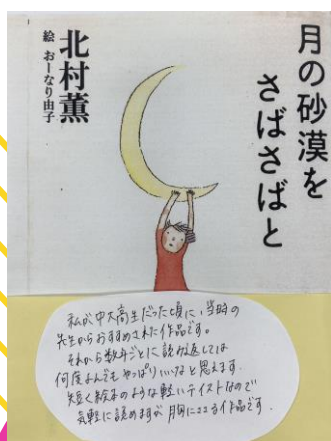 月の砂漠を
さばさばと
北村薫
絵 おーなり由子
私が中高生だった頃に、当時の
先生からおすすめされた作品です。
それから数年ごとに読み返しては
何度よんでもやっぱりいいなと思えます。
短く絵本のような軽いテイストなので
気軽に読めますが胸にくる作品です。